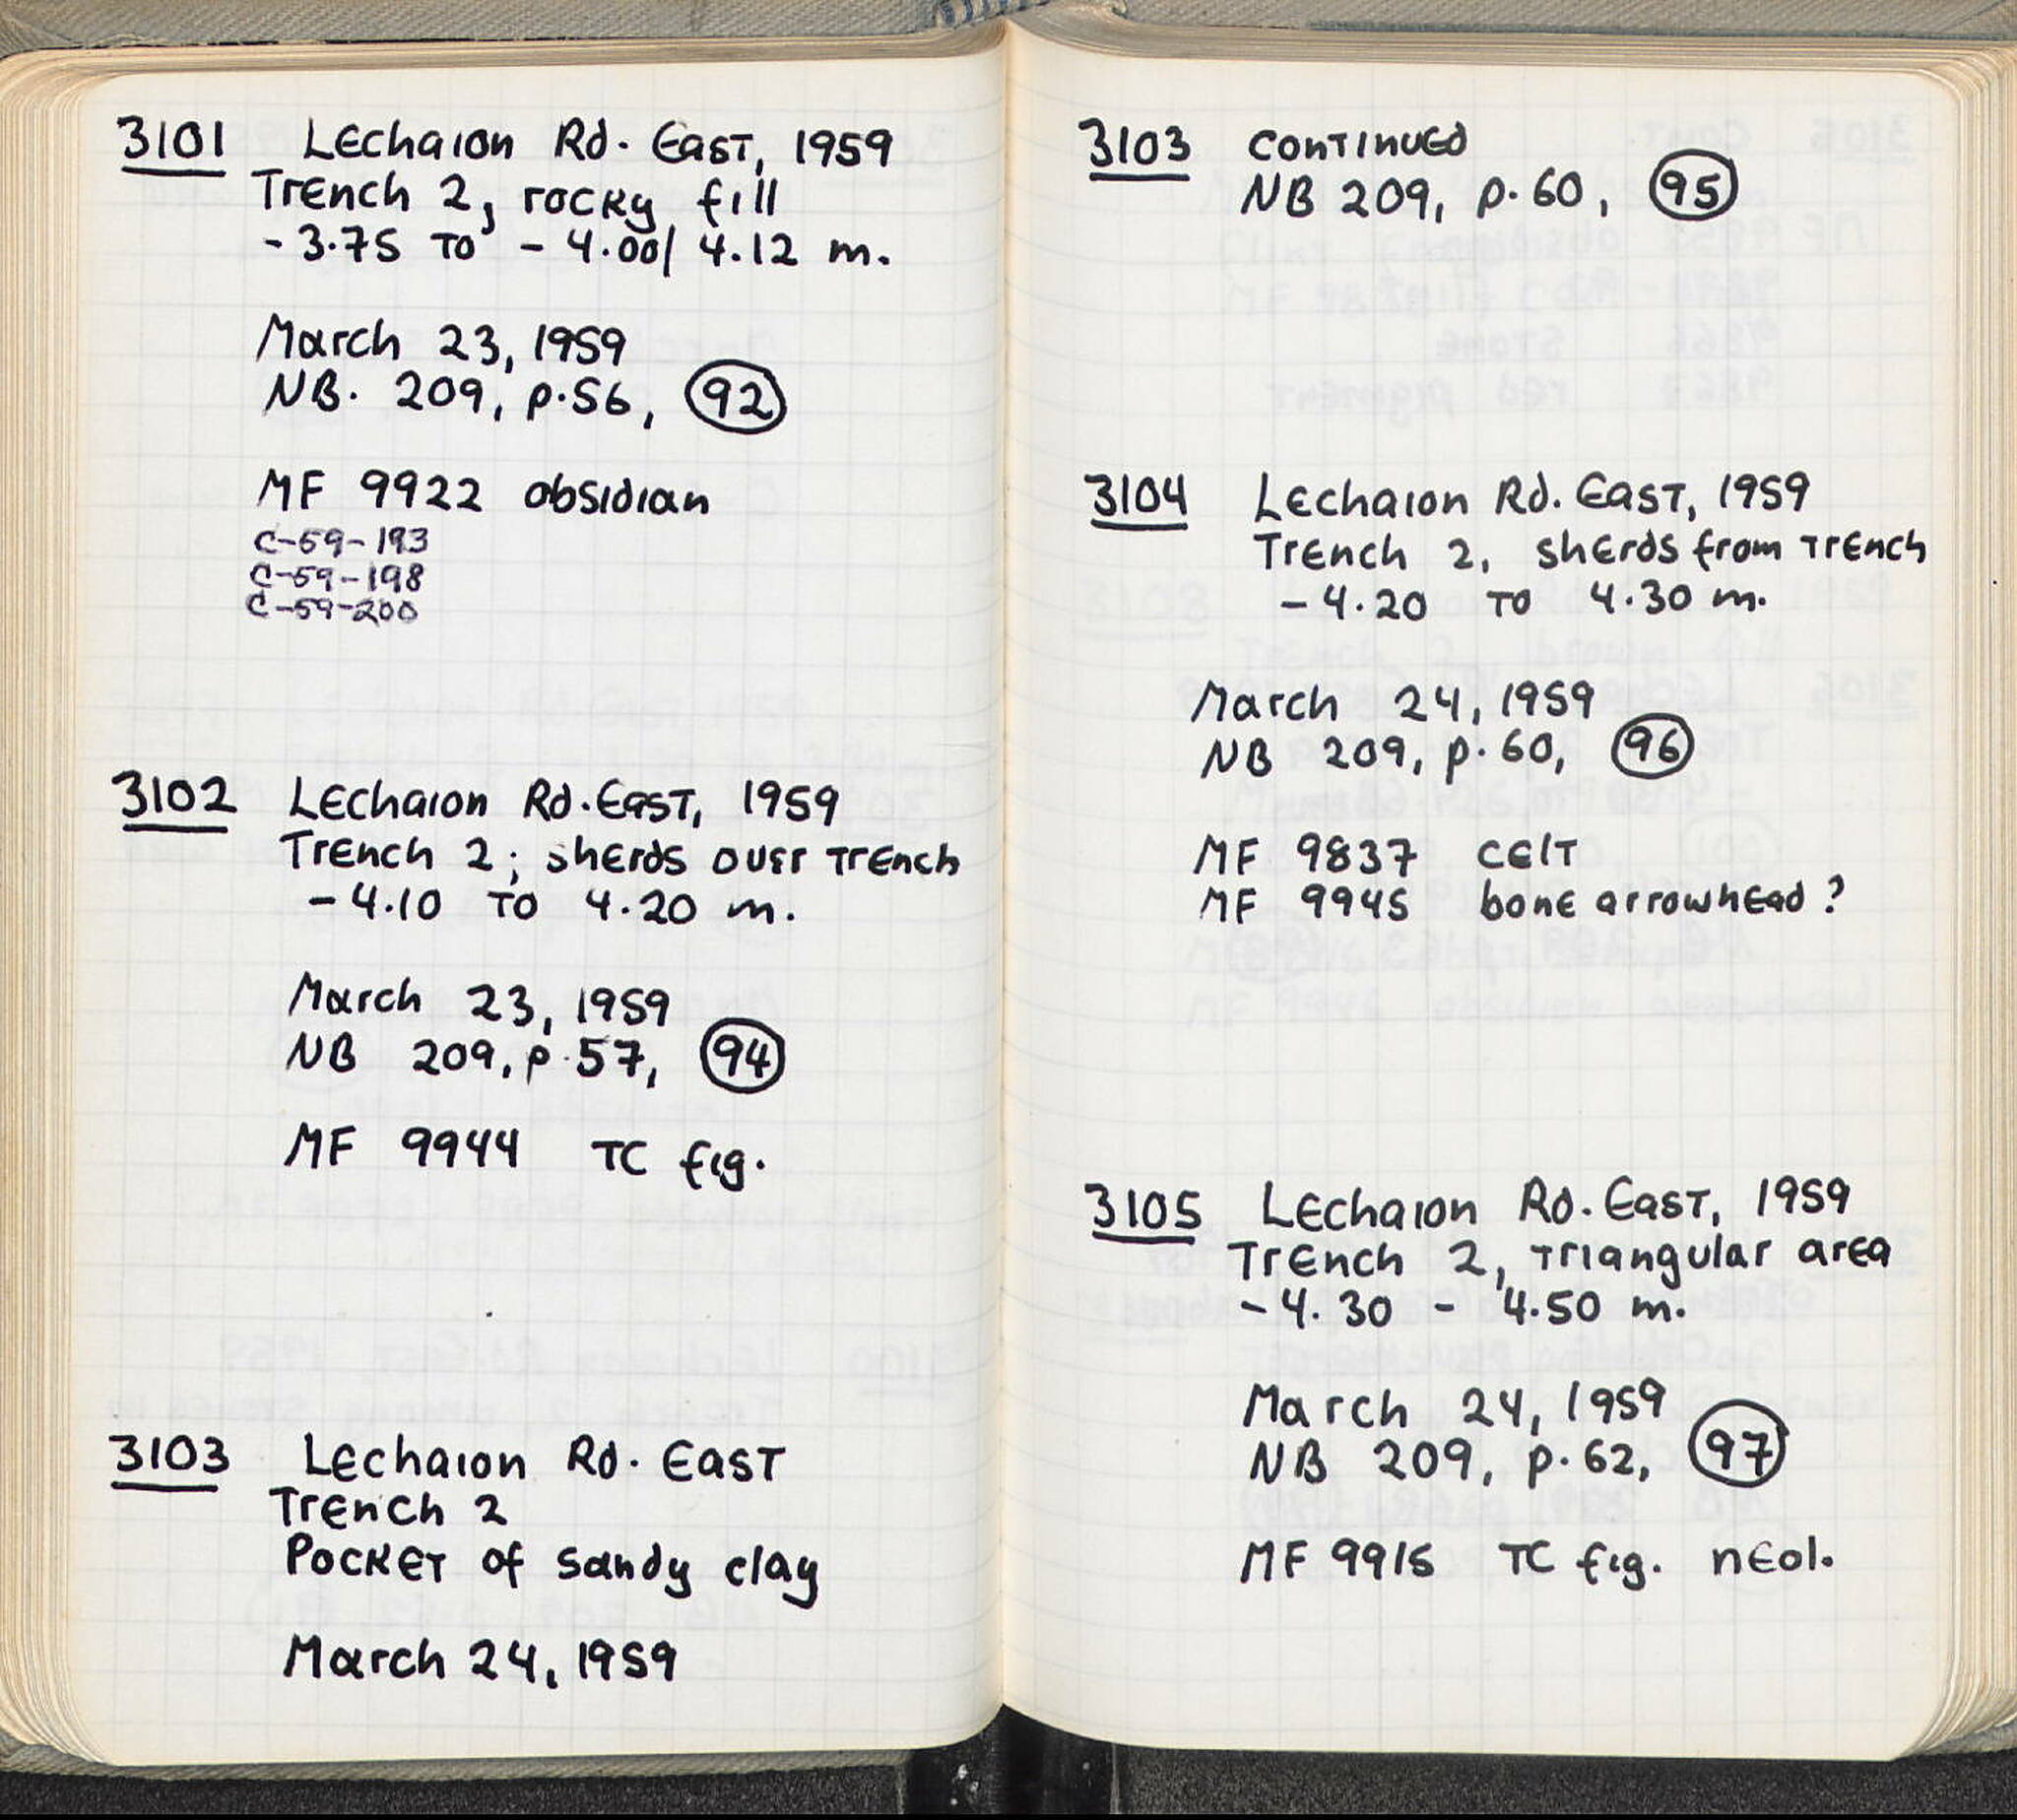 3101 Lechaion Rd. East, 1959
Trench 2, rocky fill
- 3.75 to - 4.00/ 4.12 m.
March 23, 1959
NB. 209, p.56, 92
MF 9922 obsidian
C-59-193
C-59-198
C-59-200
3102 Lechaion Rd. East, 1959
Trench 2; sherds over trench
- 4.10 to 4.20 m.
March 23, 1959
NB 209, p.57, 94
MF 9944 TC fig.
3103 Lechaion Rd. East
Trench 2
Pocket of sandy clay
March 24, 1959
3103 continued
NB 209, p.60, 95
3104 Lechaion Rd. East, 1959
Trench 2, sherds from trench
- 4.20 to 4.30 m.
March 24, 1959
NB 209, p.60, 96
MF 9837 celt
MF 9945 bone arrowhead?
3105 Lechaion Rd. East, 1959
Trench 2, triangular area
- 4.30 - 4.50 m.
March 24, 1959
NB 209, p.62, 97
MF 9915 TC fig. neol.